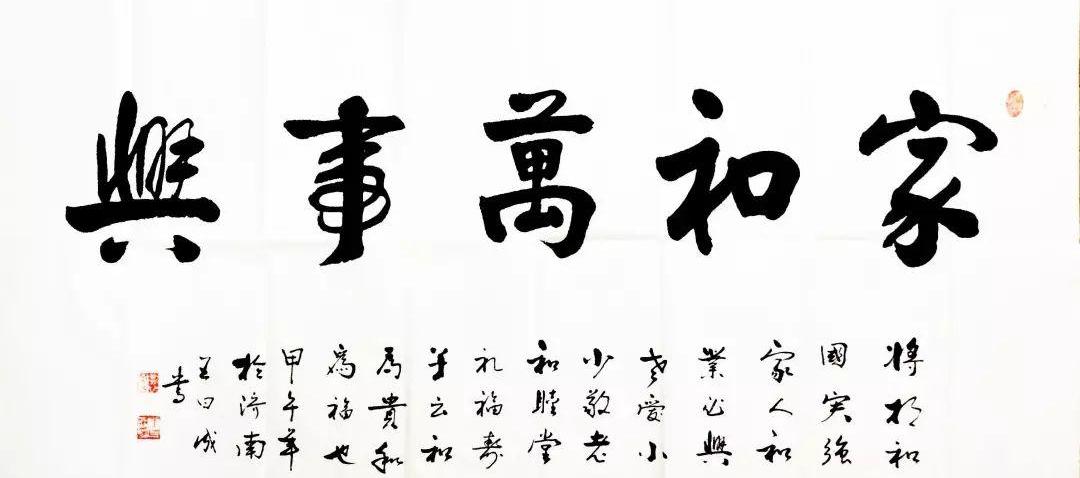 家和萬事興
將相和
國家強
家人和
業必興
老愛小
少敬老
和睦堂
礼福寿
云和
為貴和
為福也
甲午年
於济南
曰成
書